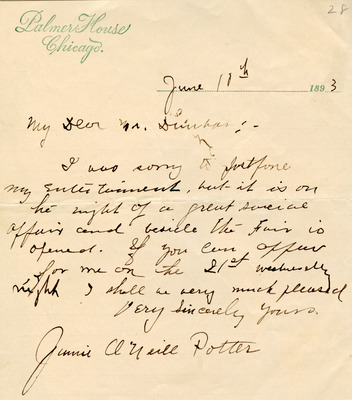 28
Palmer House
Chicago.
June 18th 1893
My Dear Mr. Dunbar;-
I was sorry to postpone
my entertainment, but it is on
the night of a great social
affair and beside the Fair is
opened. If you can appear
for me on the 21st Wednesday
night I shall be very much pleased
Very Sincerely Yours.
Jennie O'Neill Potter